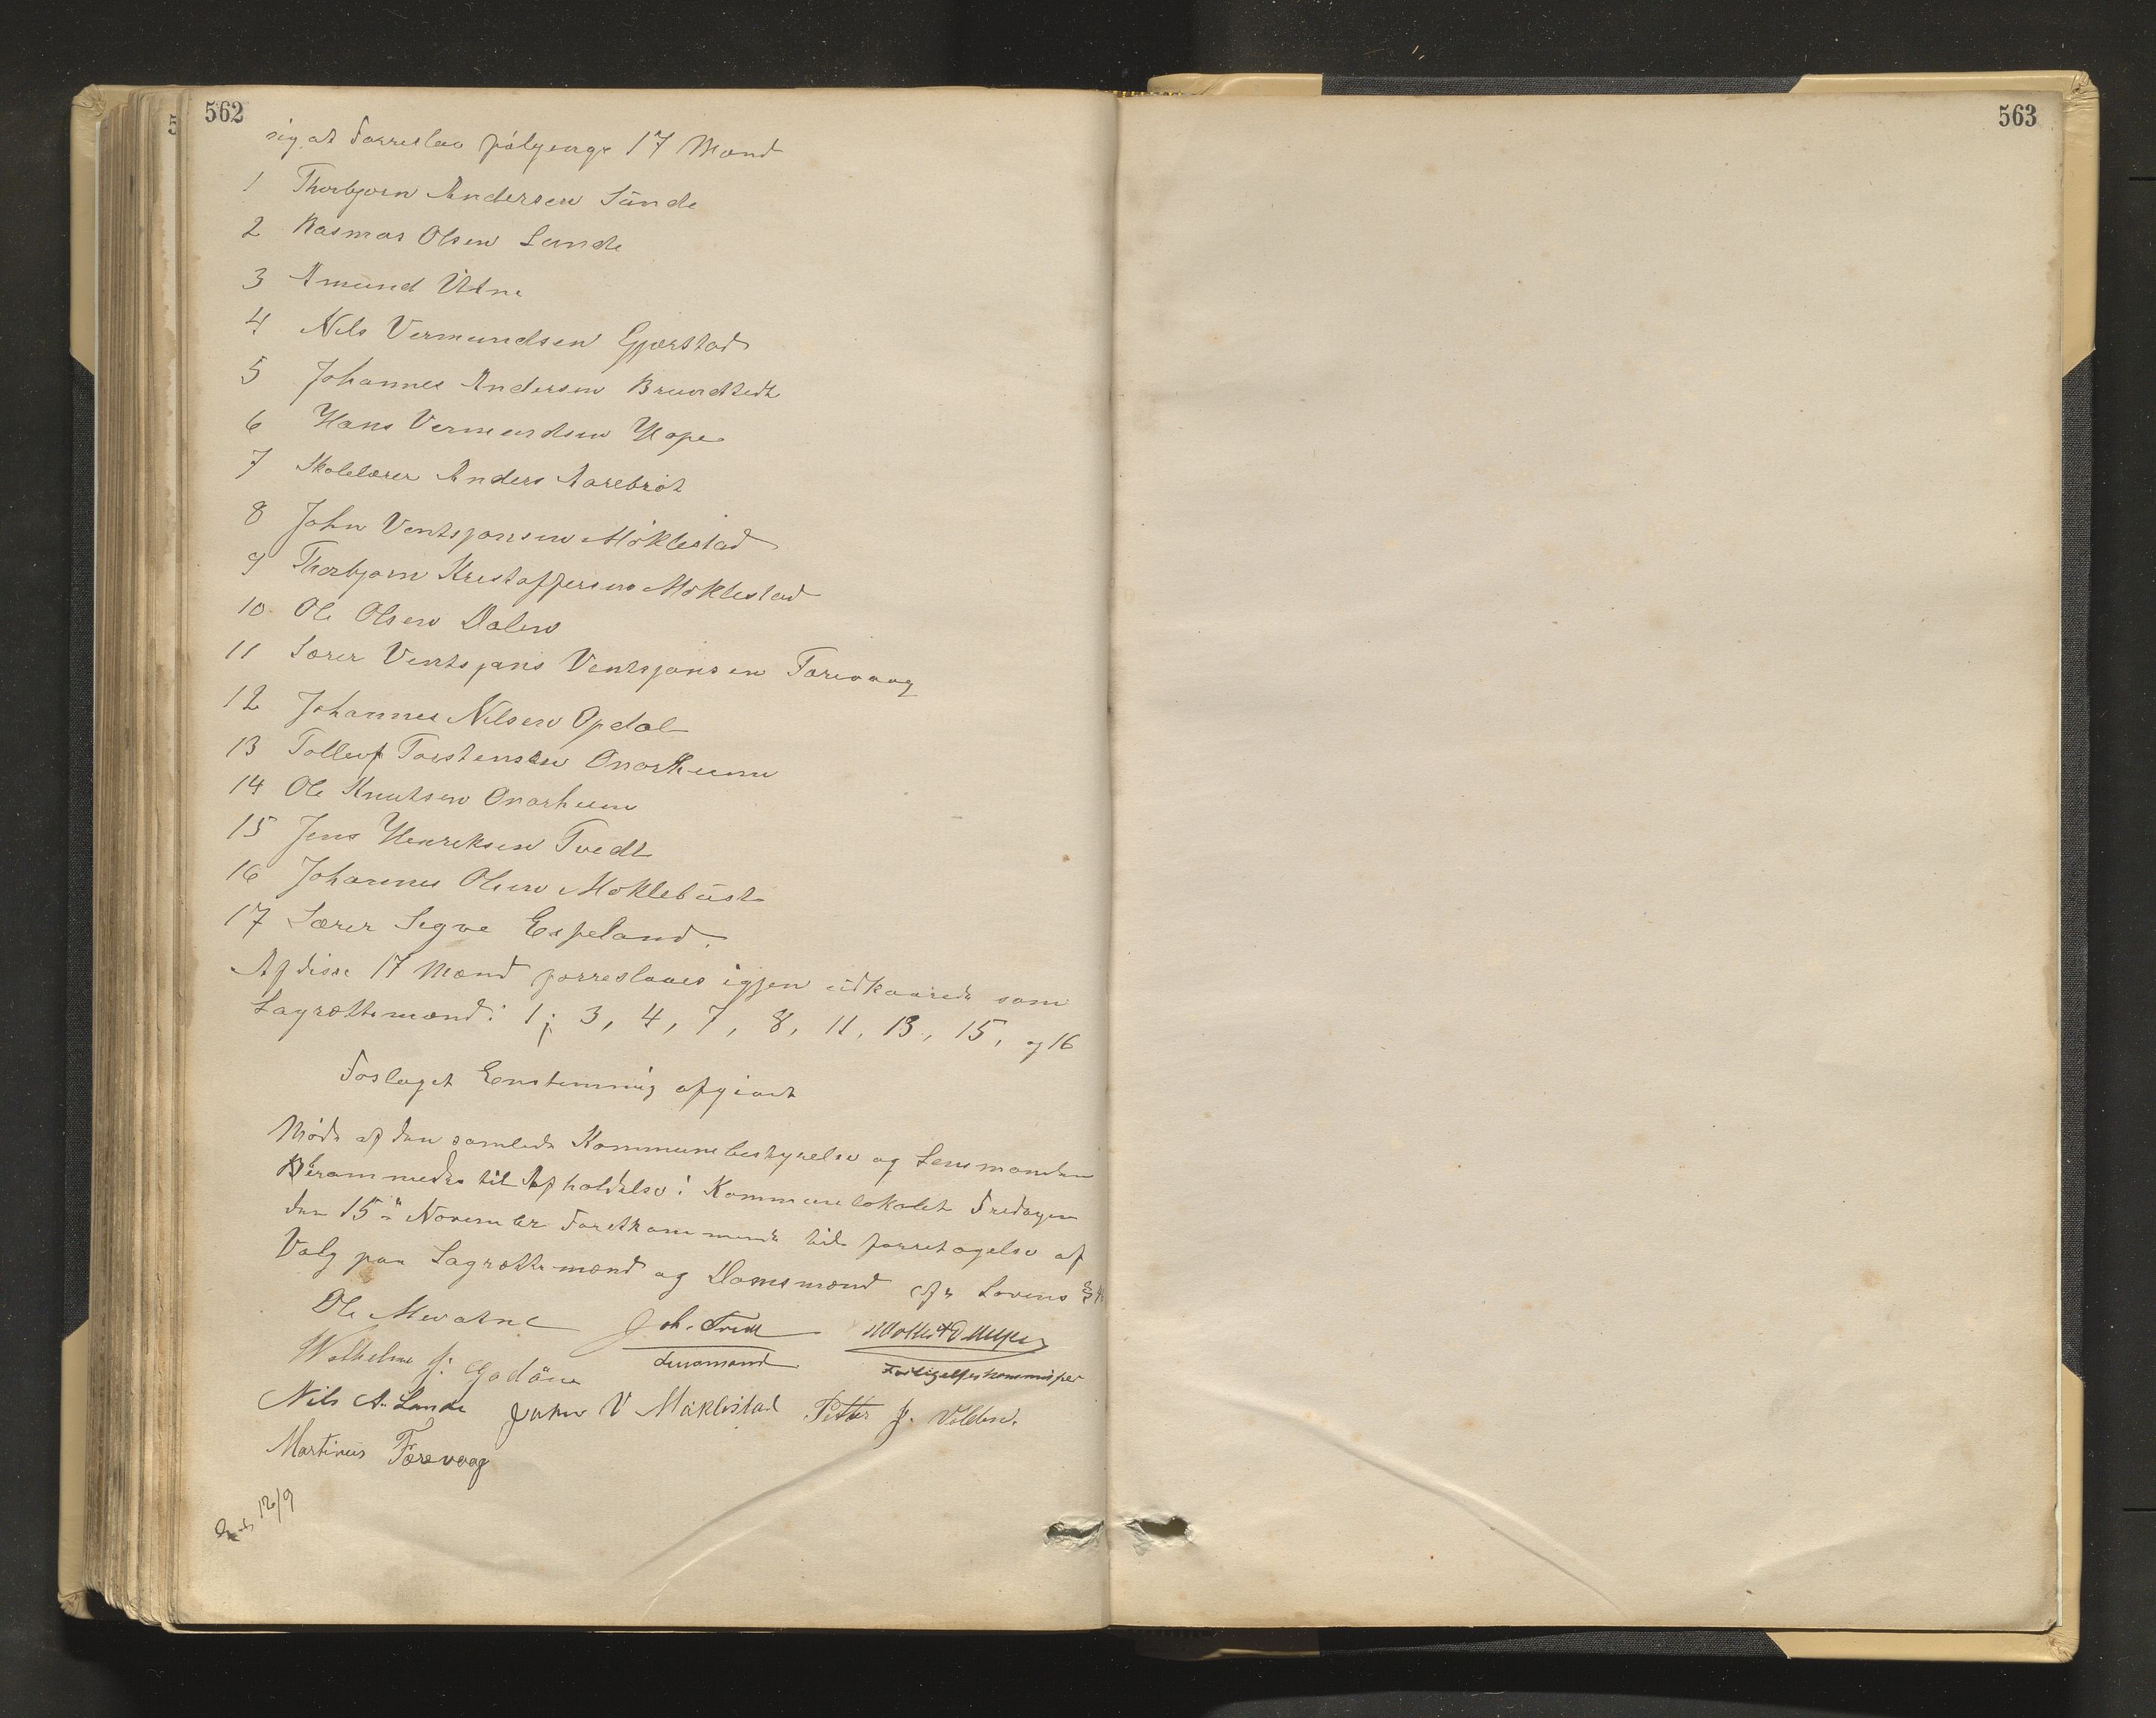 562
sig at Forreslaa følgenge 17 Mænd
1 Thorbjørn Andersen Sunde
2 Rasmus Olsen Lunde
3 Amund Utne
4 Nils Vermundsen Gjærstad
5 Johannes Andersen Brundtedt
6 Hans Vermundsen Hope
7 Skolelærer Anders Aarebrot
8 John Ventsjonsen Møklestad
9 Thorbjørn Kristoffersen Møklestad
10 Ole Olsen Dalen
11 Lærer Ventsjans Ventsjonsen Førevaag
12 Johannes Nilsen Opdal
13 Tollev Torstensen Onarheim
14 Ole Knutsen Onarheim
15 Jens Henriksen Tvedt
16 Johannes Olsen Møklebust
17 Lærer Sigve Espeland.
Af disse 17 Mænd forreslaaes igjen udkaarede som
Lagrettemænd: 1, 3, 4, 7, 8, 11, 13, 15, og 16
Forslaget Enstemmig afgivet
Møde af den samlede Kommunebestyrelse og Lensmanden
Berammedes til Afholdelse i Kommunelokalet Fredagen
den 15de November Førstkommende til forretagelse af
Valg paa Lagrettemænd og Domsmænd efr Lovens §
Ole Mevatne Joh. Tvedt
Wilhelm J. Godøen Lensmand Forligelseskommissær
Nils A. Lunde John V Møklestad Petter J. Volden.
Martinus Førevaag
12/9
563